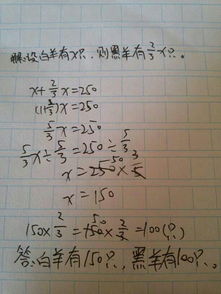 解:设白羊有x只,则黑羊有2/3x只。
x+2/3x=250
(1+2/3)x=250
5/3x=250
5/3x÷5/3=250÷5/3
x=250×3/5
x=150
150×2/3=150×2/3=100(只)
答:白羊有150只,黑羊有100只。